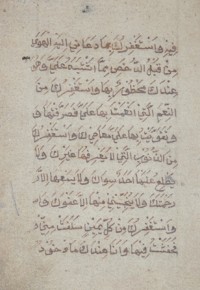 فيه واستغفرك بما دعاني إليه الهوى
من قبل الرخص مما اشتبه علي وهو
عندك محظور بها واستغفرك من
النعم التي انعمت بها علي فصرفتها و
تقويت بها على معاصيك واستغفرك
من الذنوب التي لا يغفرها غيرك ولا
يطلع عليها احد سواك ولا يسعها الا
رحمتك ولا ينجي منها الا عفوك
واستغفرك من كل يمين سلفت مني
فحنثت فيها وانا عندك ماخوذ